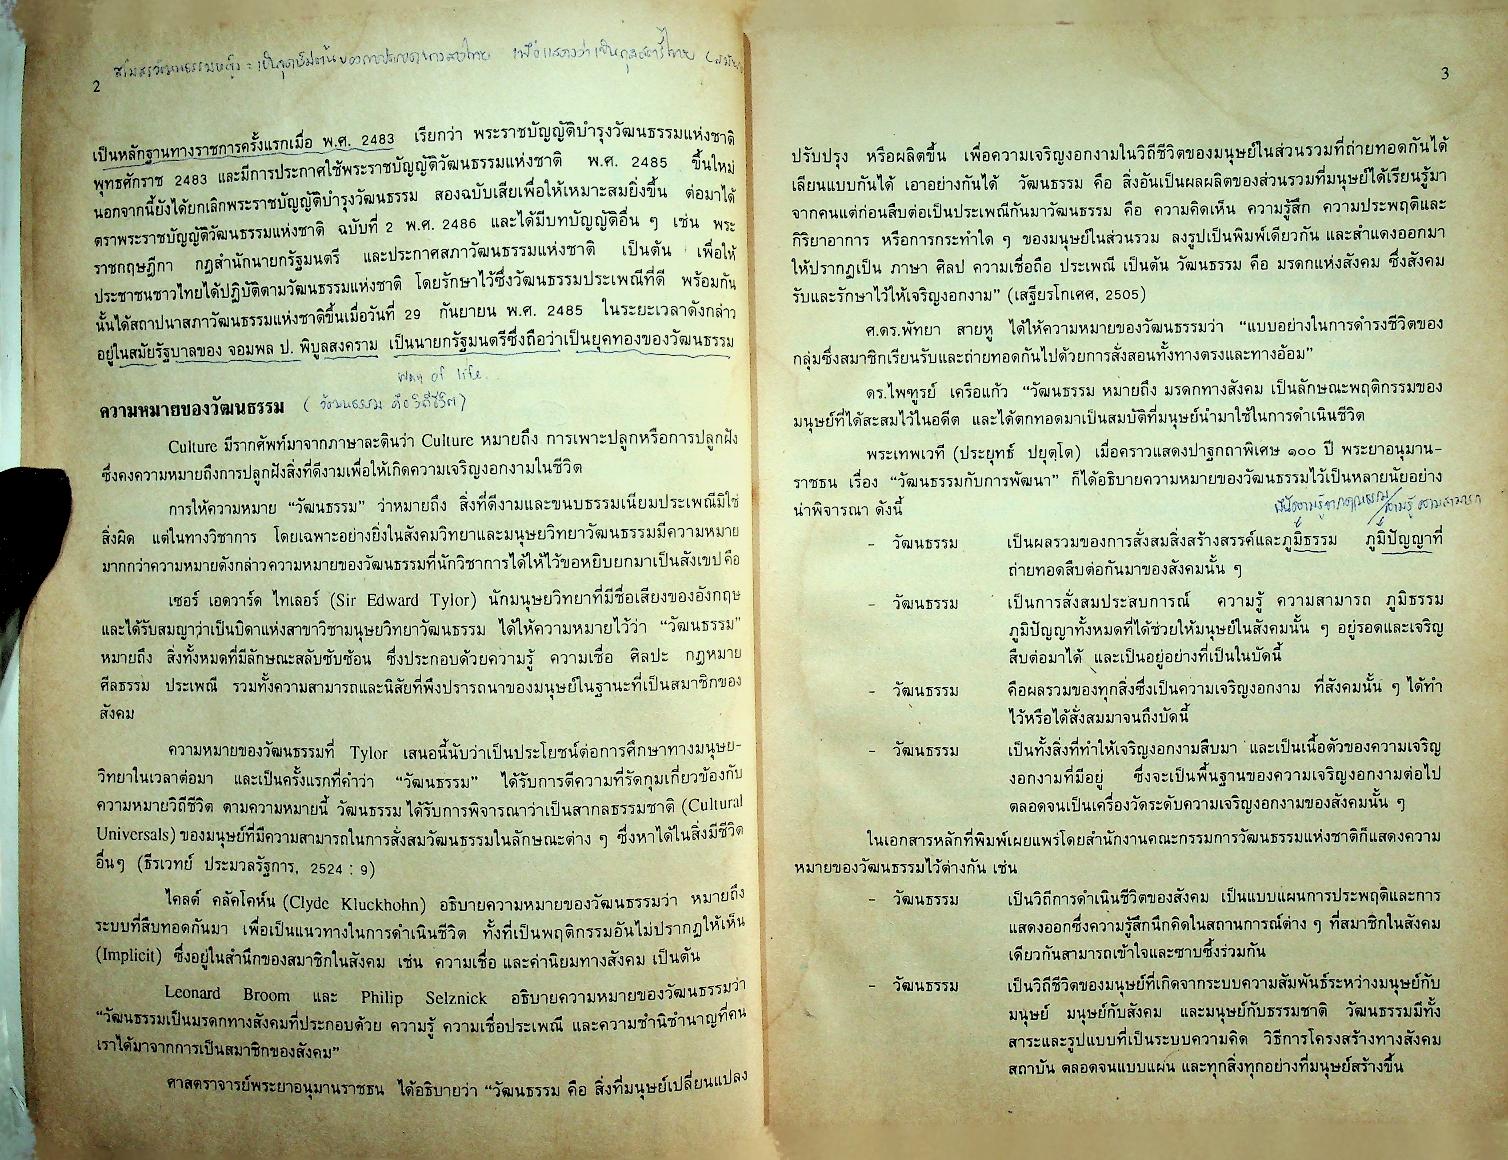 สโมสรวัฒนธรรมหญิง = เป็นจุดเริ่มต้นของการ
2
เป็นหลักฐานทางราชการครั้งแรกเมื่อ พ.ศ. 2483 เรียกว่า พระราชบัญญัติบำรุงวัฒนธรรมแห่งชาติ
พุทธศักราช 2483 และมีการประกาศใช้พระราชบัญญัติวัฒนธรรมแห่งชาติ พ.ศ. 2485 ขึ้นใหม่
นอกจากนี้ยังได้ยกเลิกพระราชบัญญัติบำรุงวัฒนธรรม สองฉบับเสียเพื่อให้เหมาะสมยิ่งขึ้น ต่อมาได้
ตราพระราชบัญญัติวัฒนธรรมแห่งชาติ ฉบับที่ 2 พ.ศ. 2486 และได้มีบทบัญญัติอื่น ๆ เช่น พระ
ราชกฤษฎีกา กฎสำนักนายกรัฐมนตรี และประกาศสภาวัฒนธรรมแห่งชาติ เป็นต้น เพื่อให้
ประชาชนชาวไทยได้ปฏิบัติตามวัฒนธรรมแห่งชาติ โดยรักษาไว้ซึ่งวัฒนธรรมประเพณีที่ดี พร้อมกัน
นั้นได้สถาปนาสภาวัฒนธรรมแห่งชาติขึ้นเมื่อวันที่ 29 กันยายน พ.ศ. 2485 ในระยะเวลาดังกล่าว
อยู่ในสมัยรัฐบาลของ จอมพล ป. พิบูลสงคราม เป็นนายกรัฐมนตรีซึ่งถือว่าเป็นยุคทองของวัฒนธรรม
way of life
ความหมายของวัฒนธรรม (วัฒนธรรม คือ วิถีชีวิต)
Culture มีรากศัพท์มาจากภาษาละตินว่า Culture หมายถึง การเพาะปลูกหรือการปลูกฝัง
ซึ่งคงความหมายถึงการปลูกฝังสิ่งที่ดีงามเพื่อให้เกิดความเจริญงอกงามในชีวิต
การให้ความหมาย “วัฒนธรรม” ว่าหมายถึง สิ่งที่ดีงามและขนบธรรมเนียมประเพณีมิใช่
สิ่งผิด แต่ในทางวิชาการ โดยเฉพาะอย่างยิ่งในสังคมวิทยาและมนุษยวิทยาวัฒนธรรมมีความหมาย
มากกว่าความหมายดังกล่าวความหมายของวัฒนธรรมที่นักวิชาการได้ให้ไว้ขอหยิบยกมาเป็นสังเขป คือ
เซอร์ เอดวาร์ด ไทเลอร์ (Sir Edward Tylor) นักมนุษยวิทยาที่มีชื่อเสียงของอังกฤษ
และได้รับสมญาว่าเป็นบิดาแห่งสาขาวิชามนุษยวิทยาวัฒนธรรม ได้ให้ความหมายไว้ว่า “วัฒนธรรม”
หมายถึง สิ่งทั้งหมดที่มีลักษณะสลับซับซ้อน ซึ่งประกอบด้วยความรู้ ความเชื่อ ศิลปะ กฎหมาย
ศีลธรรม ประเพณี รวมทั้งความสามารถและนิสัยที่พึงปรารถนาของมนุษย์ในฐานะที่เป็นสมาชิกของ
สังคม
ความหมายของวัฒนธรรมที่ Tylor เสนอนี้นับว่าเป็นประโยชน์ต่อการศึกษาทางมนุษย-
วิทยาในเวลาต่อมา และเป็นครั้งแรกที่คำว่า “วัฒนธรรม” ได้รับการตีความที่รัดกุมเกี่ยวข้องกับ
ความหมายวิถีชีวิต ตามความหมายนี้ วัฒนธรรม ได้รับการพิจารณาว่าเป็นสากลธรรมชาติ (Cultural
Universals) ของมนุษย์ที่มีความสามารถในการสั่งสมวัฒนธรรมในลักษณะต่าง ๆ ซึ่งหาได้ในสิ่งมีชีวิต
อื่นๆ (ธีรเวทย์ ประมวลรัฐการ, 2524 : 9)
ไคลด์ คลัคโคห์น (Clyde Kluckhohn) อธิบายความหมายของวัฒนธรรมว่า หมายถึง
ระบบที่สืบทอดกันมา เพื่อเป็นแนวทางในการดำเนินชีวิต ทั้งที่เป็นพฤติกรรมอันไม่ปรากฏให้เห็น
(Implicit) ซึ่งอยู่ในสำนึกของสมาชิกในสังคม เช่น ความเชื่อ และค่านิยมทางสังคม เป็นต้น
Leonard Broom และ Philip Selznick อธิบายความหมายของวัฒนธรรมว่า
“วัฒนธรรมเป็นมรดกทางสังคมที่ประกอบด้วย ความรู้ ความเชื่อประเพณี และความชำนิชำนาญที่คน
เราได้มาจากการเป็นสมาชิกของสังคม”
ศาสตราจารย์พระยาอนุมานราชธน ได้อธิบายว่า “วัฒนธรรม คือ สิ่งที่มนุษย์เปลี่ยนแปลง
3
ปรับปรุง หรือผลิตขึ้น เพื่อความเจริญงอกงามในวิถีชีวิตของมนุษย์ในส่วนรวมที่ถ่ายทอดกันได้
เลียนแบบกันได้ เอาอย่างกันได้ วัฒนธรรม คือ สิ่งอันเป็นผลผลิตของส่วนรวมที่มนุษย์ได้เรียนรู้มา
จากคนแต่ก่อนสืบต่อเป็นประเพณีกันมาวัฒนธรรม คือ ความคิดเห็น ความรู้สึก ความประพฤติและ
กิริยาอาการ หรือการกระทำใด ๆ ของมนุษย์ในส่วนรวม ลงรูปเป็นพิมพ์เดียวกัน และสำแดงออกมา
ให้ปรากฏเป็น ภาษา ศิลป ความเชื่อถือ ประเพณี เป็นต้น วัฒนธรรม คือ มรดกแห่งสังคม ซึ่งสังคม
รับและรักษาไว้ให้เจริญงอกงาม” (เสฐียรโกเศศ, 2505)
ศ.ดร.พัทยา สายหู ได้ให้ความหมายของวัฒนธรรมว่า “แบบอย่างในการดำรงชีวิตของ
กลุ่มซึ่งสมาชิกเรียนรับและถ่ายทอดกันไปด้วยการสั่งสอนทั้งทางตรงและทางอ้อม”
ดร.ไพฑูรย์ เครือแก้ว “วัฒนธรรม หมายถึง มรดกทางสังคม เป็นลักษณะพฤติกรรมของ
มนุษย์ที่ได้สะสมไว้ในอดีต และได้ตกทอดมาเป็นสมบัติที่มนุษย์นำมาใช้ในการดำเนินชีวิต
พระเทพเวที (ประยุทธ์ ปยุตฺโต) เมื่อคราวแสดงปาฐกถาพิเศษ ๑๐๐ ปี พระยาอนุมาน-
ราชธน เรื่อง “วัฒนธรรมกับการพัฒนา” ก็ได้อธิบายความหมายของวัฒนธรรมไว้เป็นหลายนัยอย่าง
น่าพิจารณา ดังนี้
- วัฒนธรรม เป็นผลรวมของการสั่งสมสิ่งสร้างสรรค์และภูมิธรรม ภูมิปัญญาที่
ถ่ายทอดสืบต่อกันมาของสังคมนั้น ๆ
- วัฒนธรรม เป็นการสั่งสมประสบการณ์ ความรู้ ความสามารถ ภูมิธรรม
ภูมิปัญญาทั้งหมดที่ได้ช่วยให้มนุษย์ในสังคมนั้น ๆ อยู่รอดและเจริญ
สืบต่อมาได้ และเป็นอยู่อย่างที่เป็นในบัดนี้
- วัฒนธรรม คือผลรวมของทุกสิ่งซึ่งเป็นความเจริญงอกงาม ที่สังคมนั้น ๆ ได้ทำ
ไว้หรือได้สั่งสมมาจนถึงบัดนี้
- วัฒนธรรม เป็นทั้งสิ่งที่ทำให้เจริญงอกงามสืบมา และเป็นเนื้อตัวของความเจริญ
งอกงามที่มีอยู่ ซึ่งจะเป็นพื้นฐานของความเจริญงอกงามต่อไป
ตลอดจนเป็นเครื่องวัดระดับความเจริญงอกงามของสังคมนั้น ๆ
ในเอกสารหลักที่พิมพ์เผยแพร่โดยสำนักงานคณะกรรมการวัฒนธรรมแห่งชาติก็แสดงความ
หมายของวัฒนธรรมไว้ต่างกัน เช่น
- วัฒนธรรม เป็นวิถีการดำเนินชีวิตของสังคม เป็นแบบแผนการประพฤติและการ
แสดงออกซึ่งความรู้สึกนึกคิดในสถานการณ์ต่าง ๆ ที่สมาชิกในสังคม
เดียวกันสามารถเข้าใจและซาบซึ้งร่วมกัน
- วัฒนธรรม เป็นวิถีชีวิตของมนุษย์ที่เกิดจากระบบความสัมพันธ์ระหว่างมนุษย์กับ
มนุษย์ มนุษย์กับสังคม และมนุษย์กับธรรมชาติ วัฒนธรรมมีทั้ง
สาระและรูปแบบที่เป็นระบบความคิด วิธีการโครงสร้างทางสังคม
สถาบัน ตลอดจนแบบแผน และทุกสิ่งทุกอย่างที่มนุษย์สร้างขึ้น